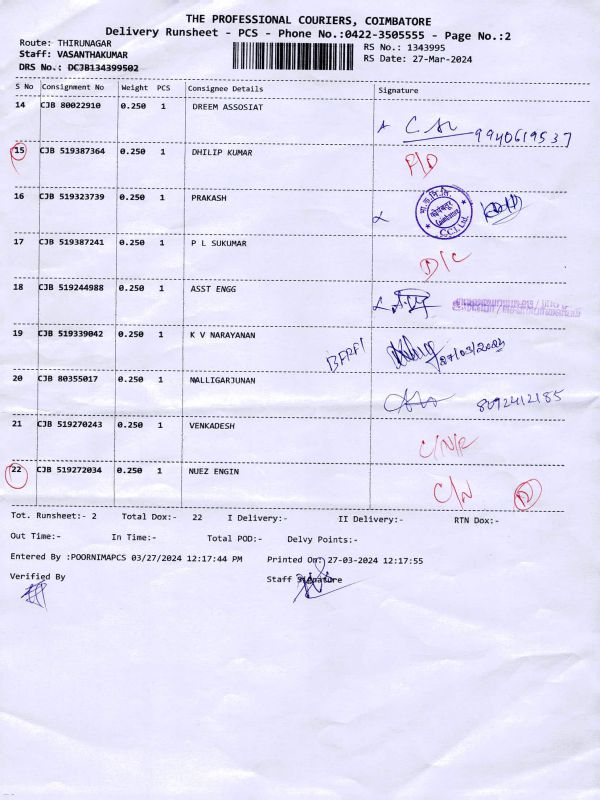 THE PROFESSIONAL COURIERS, COIMBATORE
Delivery Runsheet - PCS - Phone No.:0422-3505555 - Page No.:2
Route: THIRUNAGAR
RS No.: 1343995
Staff: VASANTHAKUMAR
RS Date: 27-Mar-2024
DRS No.: DCJB134399502
S No Consignment No Weight PCS Consignee Details Signature
14 CJB 80022910 0.250 1 DREEM ASSOSIAT
9940619537
15 CJB 519387364 0.250 1 DHILIP KUMAR
P/D
16 CJB 519323739 0.250 1 PRAKASH
Coimbatore
C.C.I. Ltd.
17 CJB 519387241 0.250 1 P L SUKUMAR
D/C
18 CJB 519244988 0.250 1 ASST ENGG
19 CJB 519339042 0.250 1 K V NARAYANAN
27/03/2024
20 CJB 80355017 0.250 1 NALLIGARJUNAN
8092412185
21 CJB 519270243 0.250 1 VENKADESH
C/N/R
22 CJB 519272034 0.250 1 NUEZ ENGIN
C/N
Tot. Runsheet:- 2 Total Dox:- 22 I Delivery:- II Delivery:- RTN Dox:-
Out Time:- In Time:- Total POD:- Delvy Points:-
Entered By :POORNIMAPCS 03/27/2024 12:17:44 PM Printed On: 27-03-2024 12:17:55
Verified By Staff Signature